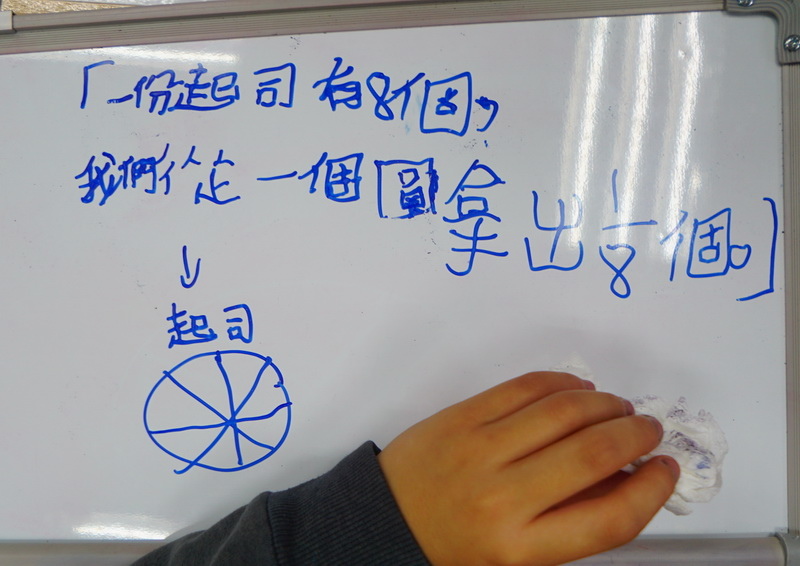 「一份起司有8個，
我們從一個圓拿出1/8個。」
↓
起司